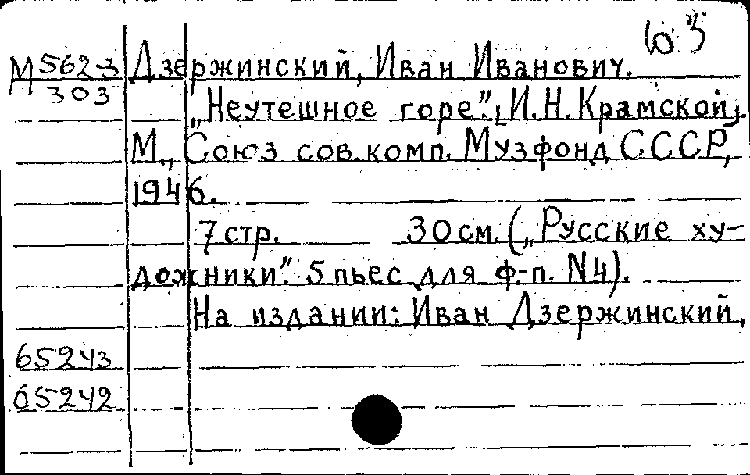 ю3
М 562-3 Дзержинский, Иван Иванович.
303
„Неутешное горе". [И.Н. Крамской].
М., Союз сов. комп. Музфонд СССР,
1946.
7 стр. 30 см. („Русские ху-
дожники". 5 пьес для ф-п. N4).
На издании: Иван Дзержинский.
65243
65242